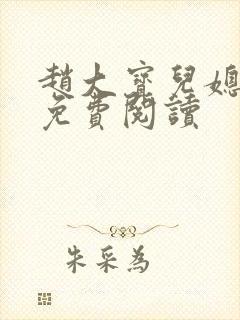 趙大寶兒媳
免費閱讀
朱采為